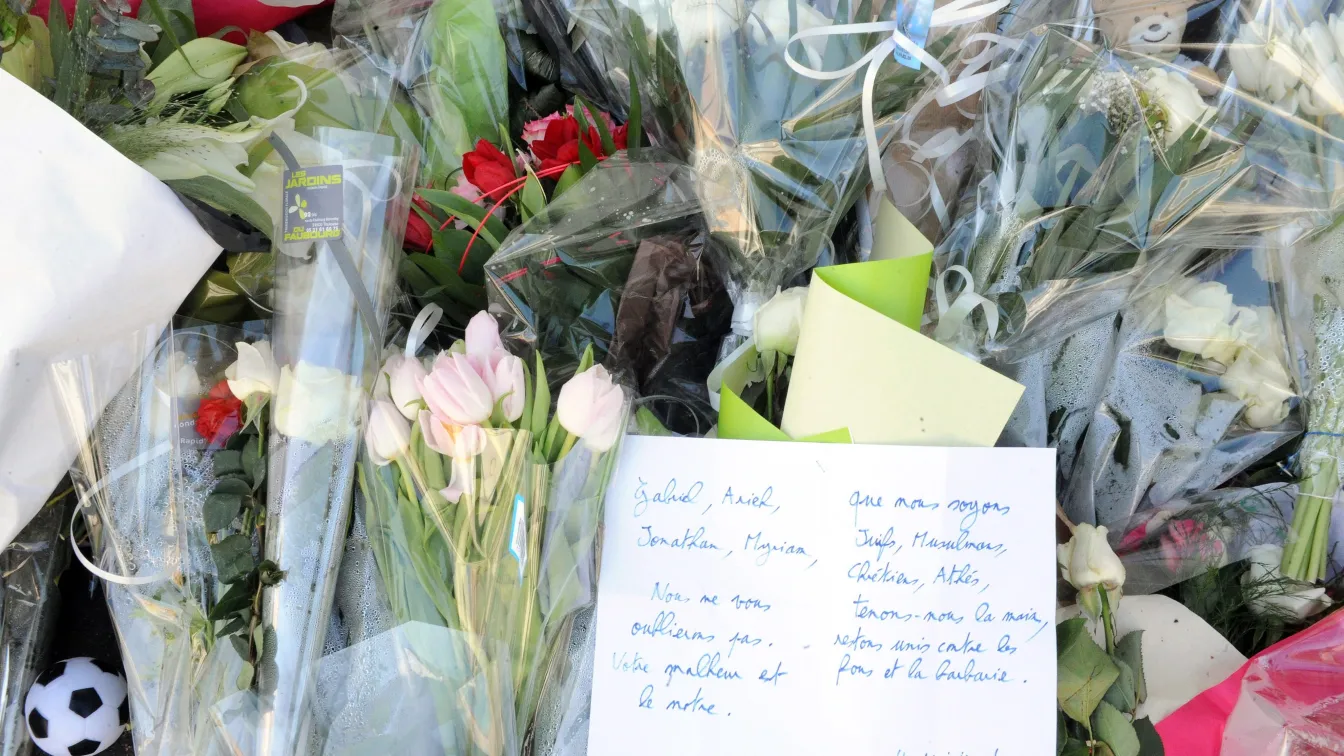 LES
JARDINS
DU
FAUBOURG
Rapid
Gabriel, Arieh,
Jonathan, Myriam,
Nous ne vous
oublierons pas.
Votre malheur est
le notre.
que nous soyons
Juifs, Musulmans,
Chrétiens, Athés,
tenons-nous la main,
restons unis contre les
fous et la barbarie.